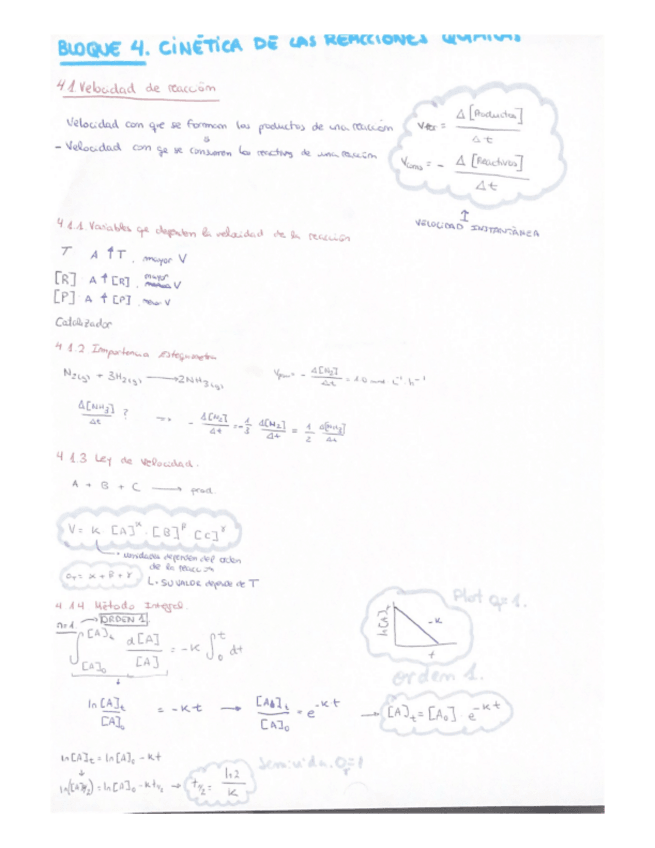 BLOQUE 4. CINÉTICA DE LAS REACCIONES QUÍMICAS
4.1. Velocidad de reacción
Velocidad con que se forman los productos de una reacción
- Velocidad con qe se consumen los reactivos de una reacción
Vfor = Δ[Productos] / Δt
Vcons = - Δ[Reactivos] / Δt
VELOCIDAD INSTANTÁNEA
4.1.1. Variables qe dependen la velocidad de la reacción
T A ↑T, mayor V
[R] A ↑[R], mayor V
[P] A ↑[P], V
Catalizador
4.1.2 Importancia Estequiometría
N2(g) + 3H2(g) → 2NH3(g)
= - Δ[N2]/Δt = 10 mol L⁻¹ h⁻¹
Δ[NH3]/Δt ? ⇒ - Δ[N2]/Δt = -1/3 Δ[H2]/Δt = 1/2 Δ[NH3]/Δt
4.1.3 Ley de velocidad.
A + B + C → prod.
V = K [A]^α · [B]^β [C]^γ
• unidades dependen del orden de la reacción
OT = α + β + γ
• SU VALOR depende de T
4.1.4. Método Integral.
n=1 → ORDEN 1
∫[A]0^[A]t d[A]/[A] = -K ∫0^t dt
Plot O=1.
ln[A]t
-K
t
orden 1.
ln [A]t/[A]0 = -Kt → [A]t/[A]0 = e^-Kt → [A]t = [A0] e^-Kt
ln[A]t = ln[A]0 - Kt
Semivida. O=1
ln([A]/2) = ln[A]0 - Kt1/2 → t1/2 = ln2/K